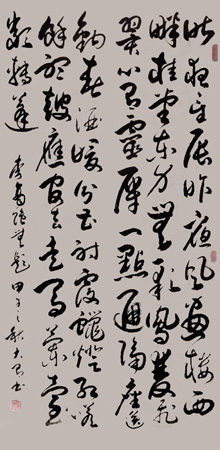 昨夜星辰昨夜風畫樓西
畔桂堂東身無彩鳳雙飛
翼心有靈犀一點通隔座送
鈎春酒暖分曹射覆蠟燈紅嗟
餘聽鼓應官去走馬蘭臺
類轉蓬
李商隱無題 甲午之秋